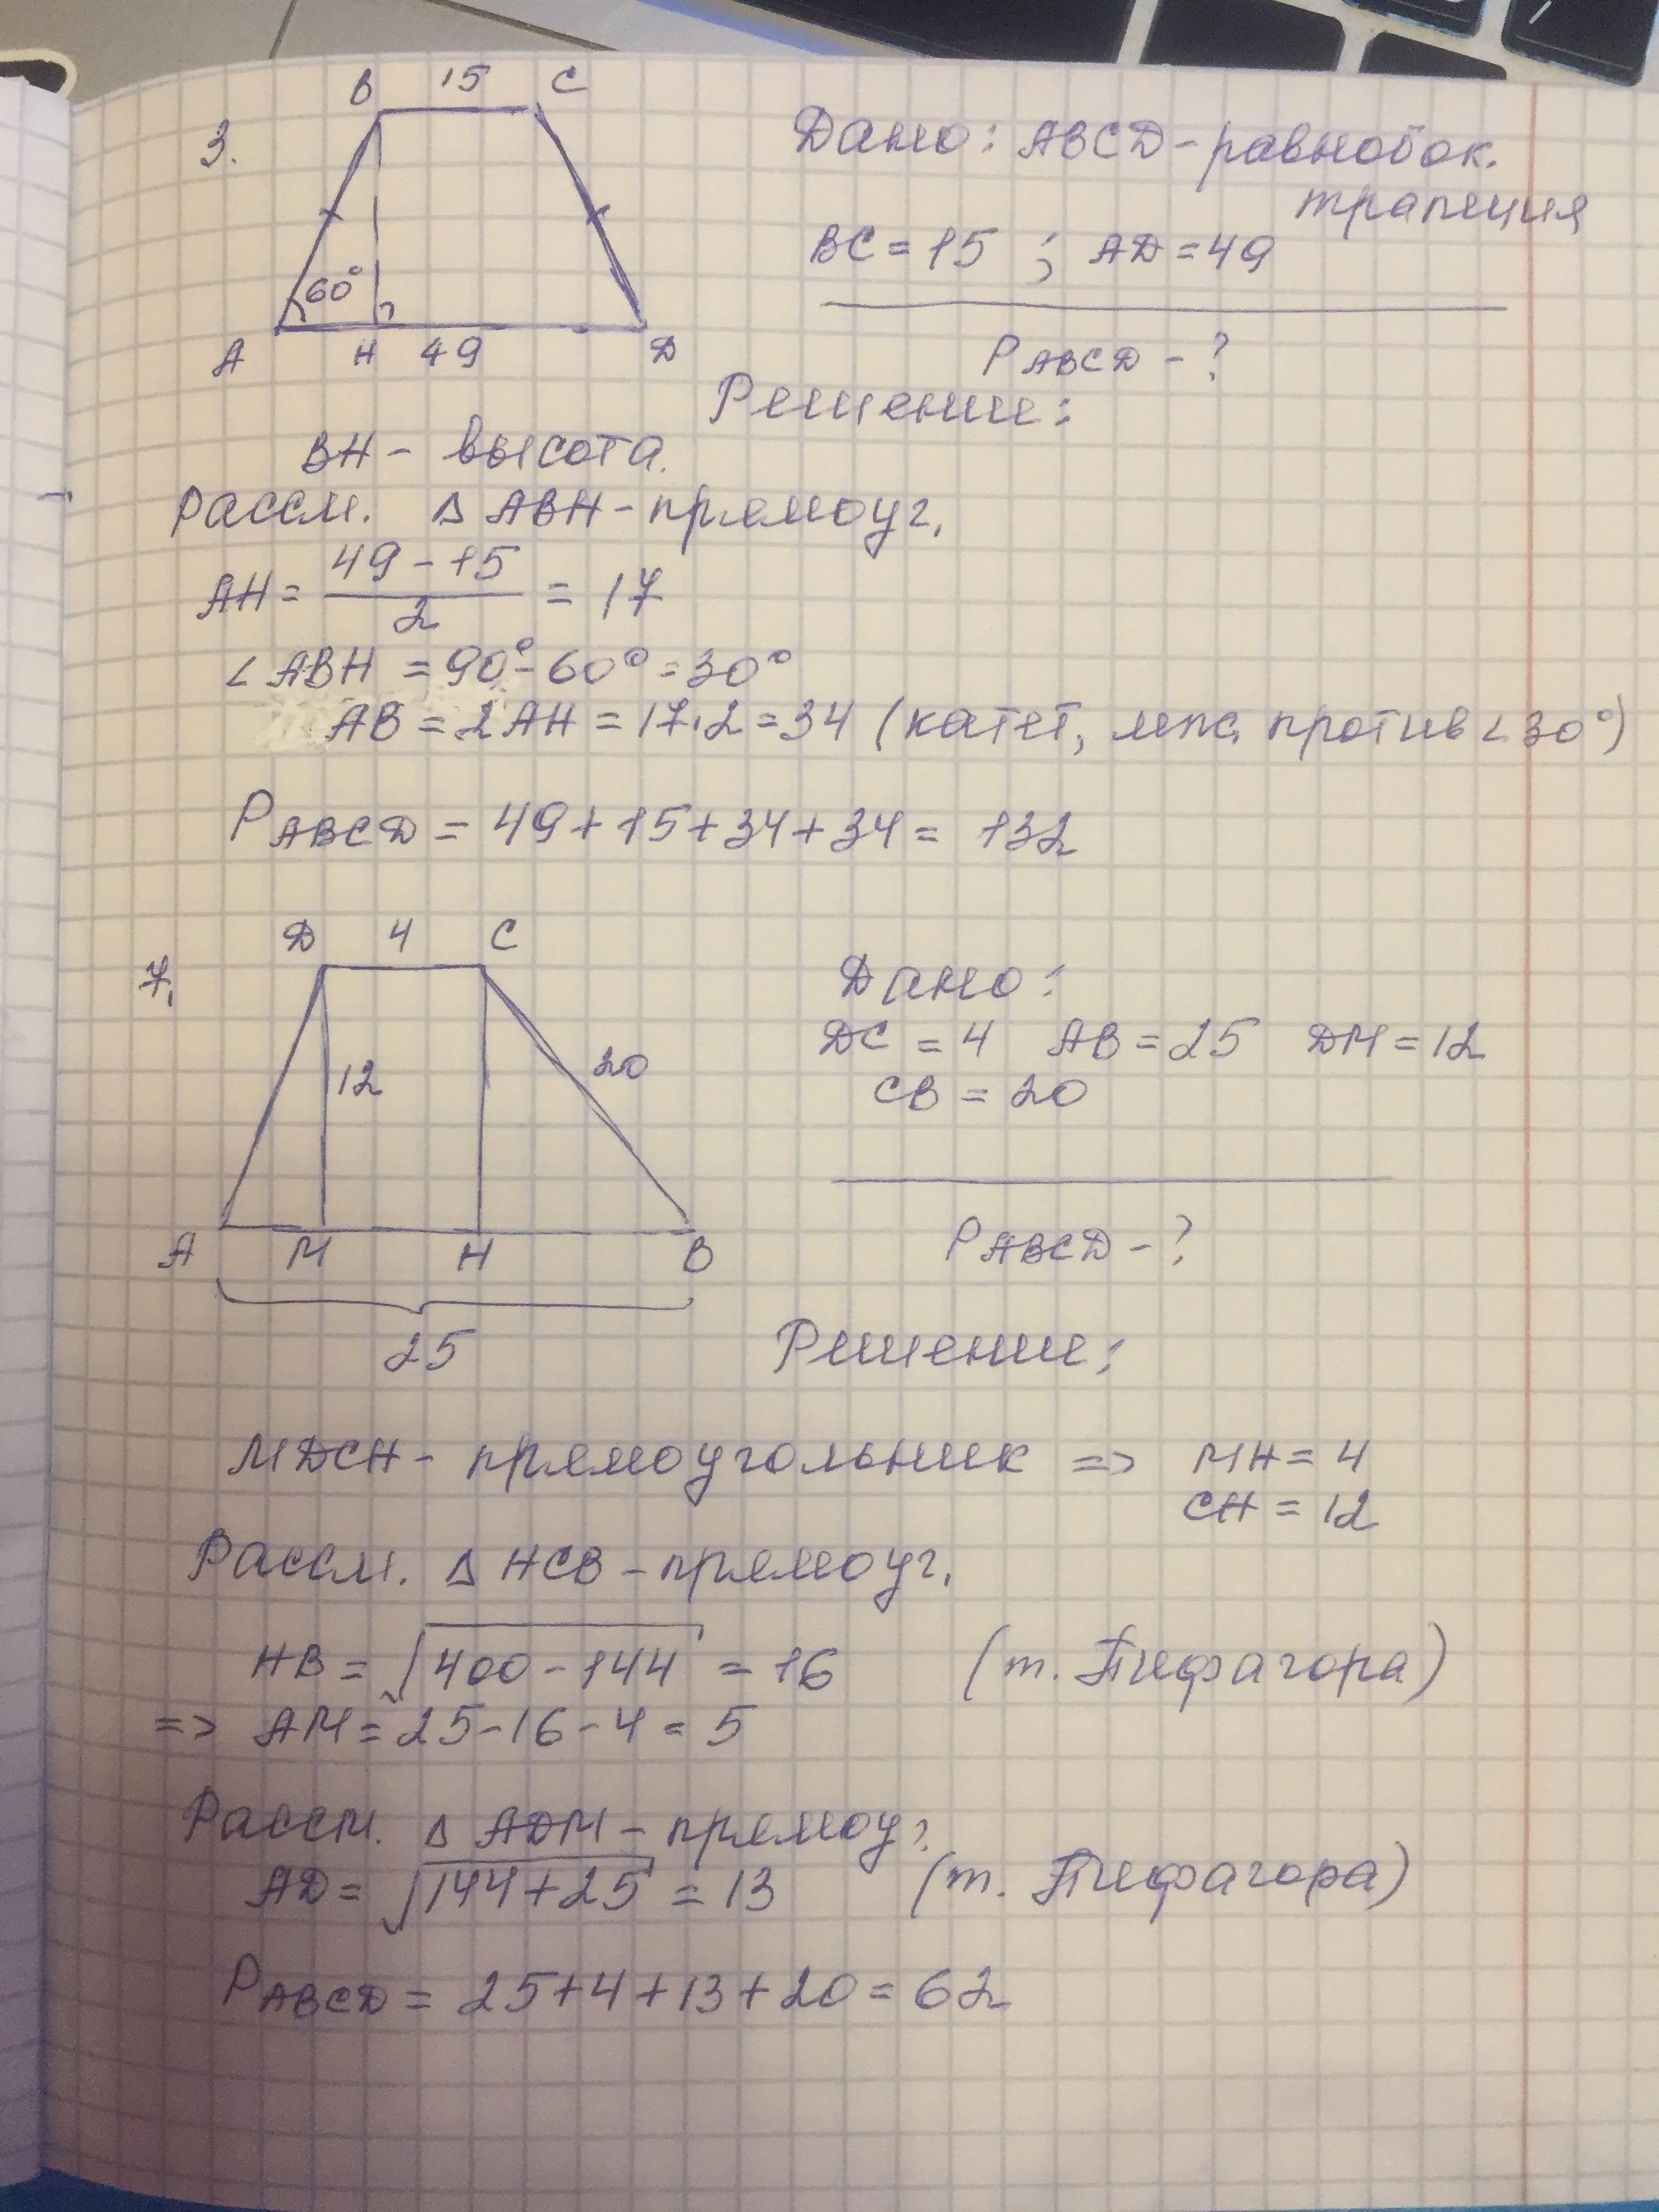 3.
B 15 C
60°
A H 49 D
Дано: ABCD - равнобок.
трапеция
BC = 15 ; AD = 49
P ABCD - ?
Решение:
BH - высота.
Рассм. Δ ABH - прямоуг.
AH = (49 - 15)/2 = 17
∠ABH = 90° - 60° = 30°
AB = 2AH = 17·2 = 34 (катет, против ∠30°)
P ABCD = 49 + 15 + 34 + 34 = 132
7.
D 4 C
12
20
A M H B
25
Дано:
DC = 4 AB = 25 DM = 12
CB = 20
P ABCD - ?
Решение:
MDCH - прямоугольник => MH = 4
CH = 12
Рассм. Δ HCB - прямоуг.
HB = √400 - 144 = 16 (т. Пифагора)
=> AM = 25 - 16 - 4 = 5
Рассм. Δ ADM - прямоуг.
AD = √144 + 25 = 13 (т. Пифагора)
P ABCD = 25 + 4 + 13 + 20 = 62